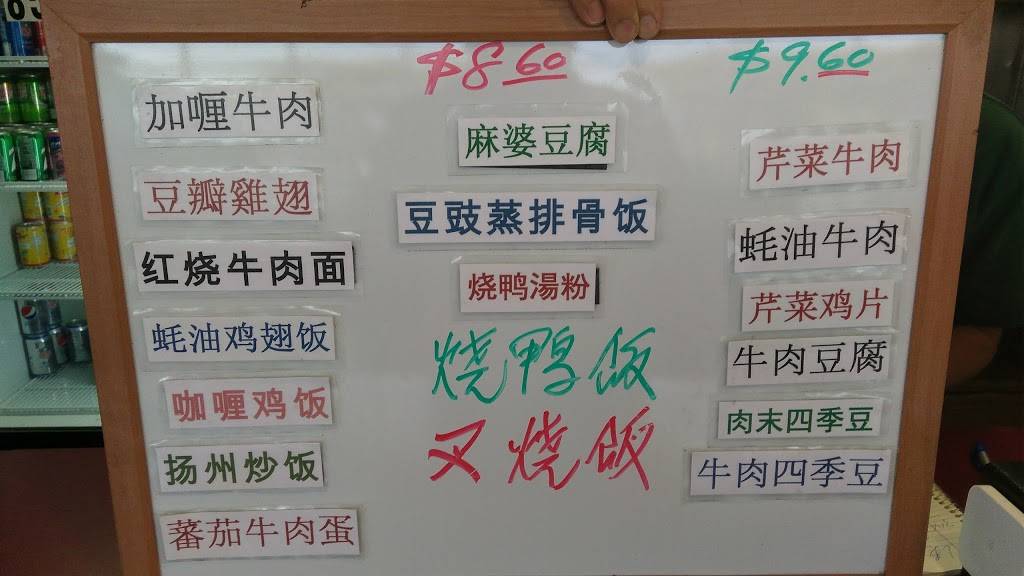 $8.60
$9.60
加喱牛肉
豆瓣雞翅
红烧牛肉面
蚝油鸡翅饭
咖喱鸡饭
扬州炒饭
蕃茄牛肉蛋
麻婆豆腐
豆豉蒸排骨饭
烧鸭湯粉
烧鸭饭
叉烧饭
芹菜牛肉
蚝油牛肉
芹菜鸡片
牛肉豆腐
肉末四季豆
牛肉四季豆